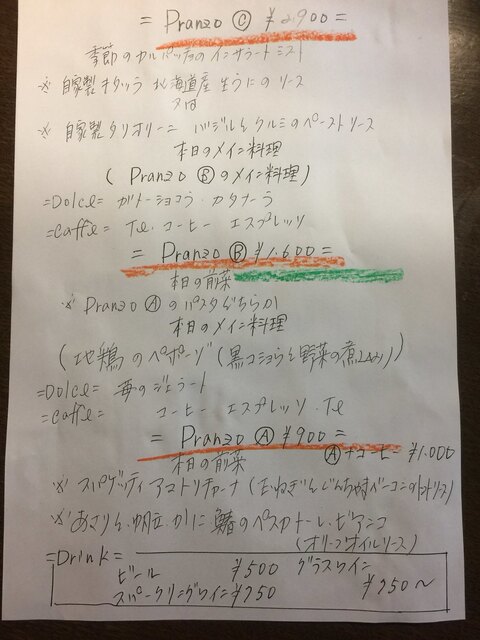 = Pranzo Ⓒ ¥2,900 =
季節のカルパッチョのインサラートミスト
※ 自家製キタッラ 北海道産生うにのソース
又は
※ 自家製タリオリーニ バジルとクルミのペーストソース
本日のメイン料理
( Pranzo Ⓑ のメイン料理)
=Dolce= ガトーショコラ・カタナーラ
=Caffe= Te. コーヒー エスプレッソ
= Pranzo Ⓑ ¥1,600 =
本日の前菜
※ Pranzo Ⓐ のパスタどちらか
本日のメイン料理
(地鶏のペポーゾ (黒コショウと野菜の煮込み))
=Dolce= 苺のジェラート
=Caffe= コーヒー エスプレッソ・Te
= Pranzo Ⓐ ¥900 =
Ⓐ+コーヒー ¥1,000
本日の前菜
※ スパゲッティ アマトリチャーナ (玉ねぎとじんちゃすベーコンのトマトソース)
※ あさりと、帆立、かに 鰆のペスカトーレ・ビアンコ
(オリーブオイルソース)
=Drink=
ビール ¥500 グラスワイン
スパークリングワイン ¥750 ¥750〜